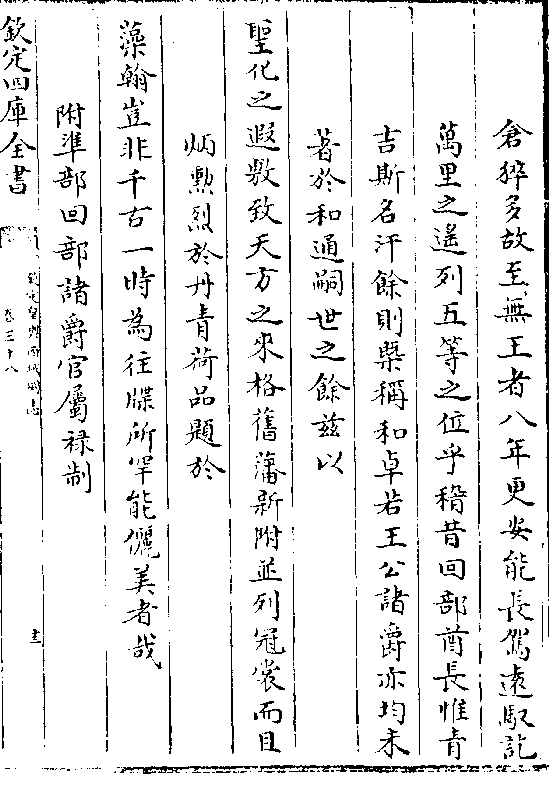 倉猝多故至無王者八年更安能長駕遠馭記
萬里之遙列五等之位乎稽昔回部酋長惟青
吉斯名汗餘則槩稱和卓若王公諸爵亦均未
著於和通嗣世之餘兹以
聖化之遐敷致天方之來格舊藩新附並列冠裳而且
炳勲烈於丹青荷品題於
藻翰豈非千古一時為往牒所罕能儷美者哉
附準部回部諸爵官屬禄制
欽定四庫全書
欽定皇輿西域圖志
卷三十八